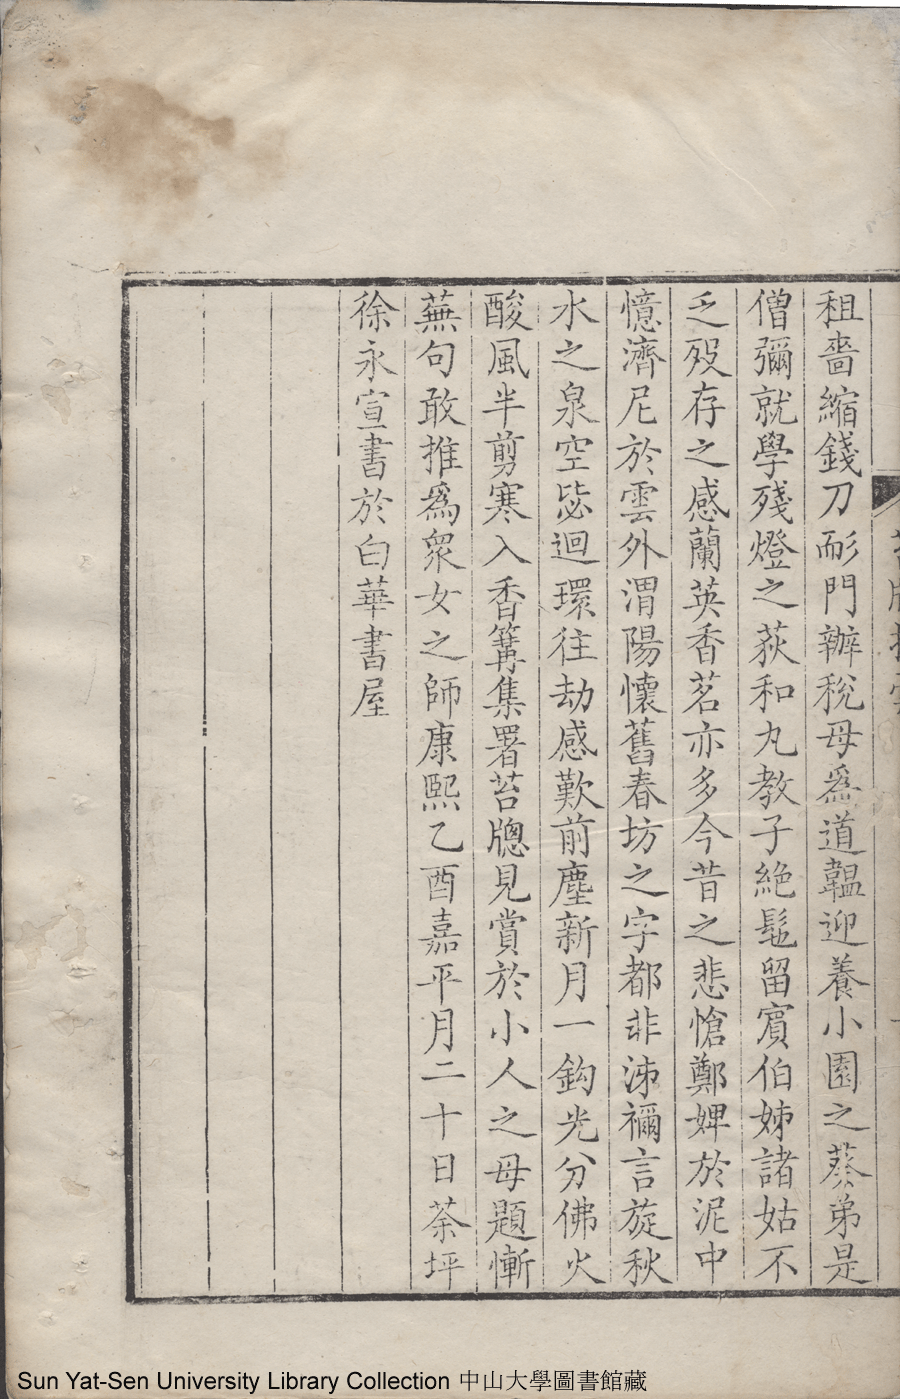 租嗇縮錢刀耏門辦稅母爲道韞迎養小園之葵弟是
僧彌就學殘燈之荻和丸教子絶髢留賓伯姊諸姑不
乏歿存之感蘭英香茗亦多今昔之悲愴鄭婢於泥中
憶濟尼於雲外渭陽懷舊春坊之字都非泲禰言旋秋
水之泉空毖迴環往劫感歎前塵新月一鈎光分佛火
酸風半剪寒入香篝集署苔牎見賞於小人之母題慚
蕪句敢推爲衆女之師康熙乙酉嘉平月二十日荼坪
徐永宣書於白華書屋
Sun Yat-Sen University Library Collection 中山大學圖書館藏